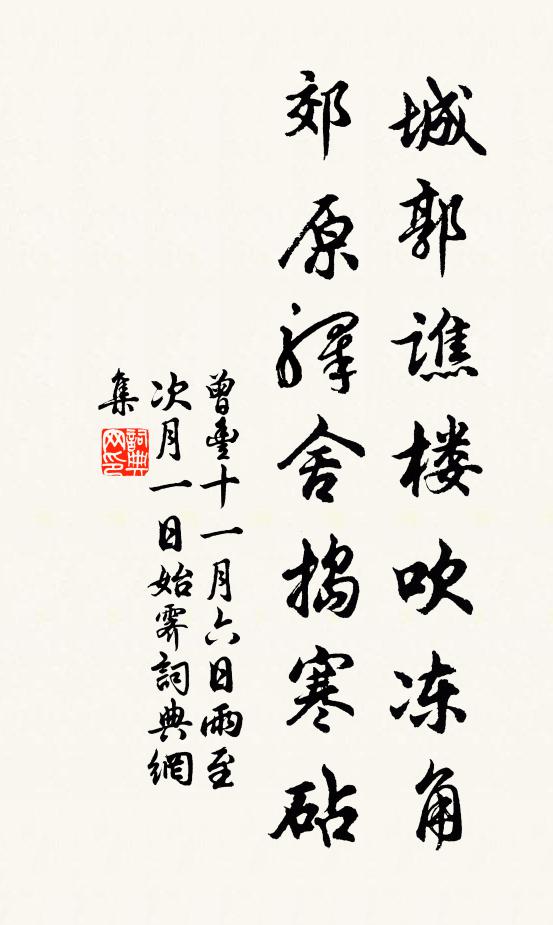 城郭譙楼吹冻角
郊原驛舍搗寒砧
曾豐十一月六日雨至
次月一日始霽詞典網
集
詞典
网印